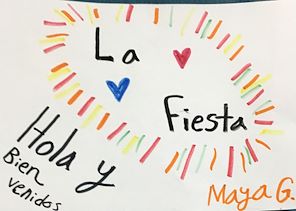 La
Fiesta
Hola y
Bien
venidos
Maya G.